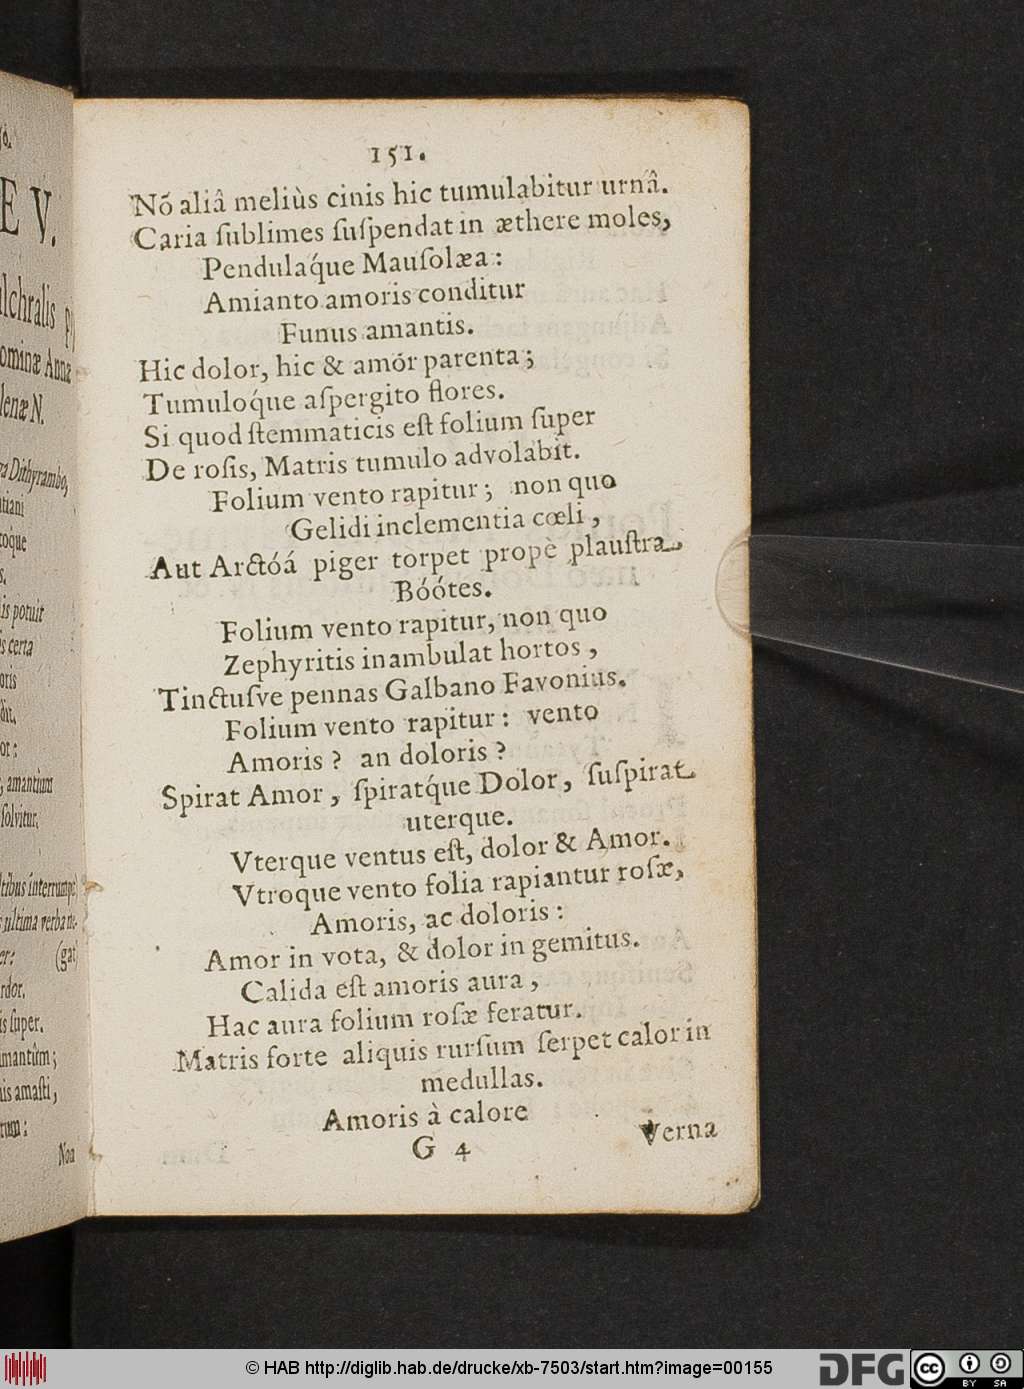 151.
Nõ aliâ meliùs cinis hic tumulabitur urnâ.
Caria ſublimes ſuſpendat in æthere moles,
Pendulaq́ue Mauſolæa :
Amianto amoris conditur
Funus amantis.
Hic dolor, hic & amór parenta ;
Tumuloq́ue aſpergito flores.
Si quod ſtemmaticis eſt folium ſuper
De roſis, Matris tumulo advolabit.
Folium vento rapitur ; non quo
Gelidi inclementia cœli ,
Aut Arctóá piger torpet propè plauſtra
Bóótes.
Folium vento rapitur, non quo
Zephyritis inambulat hortos ,
Tinctuſve pennas Galbano Favonius.
Folium vento rapitur : vento
Amoris ? an doloris ?
Spirat Amor , ſpiratq́ue Dolor , ſuſpirat
uterque.
Vterque ventus eſt, dolor & Amor.
Vtroque vento folia rapiantur roſæ,
Amoris, ac doloris :
Amor in vota, & dolor in gemitus.
Calida eſt amoris aura ,
Hac aura folium roſæ feratur.
Matris forte aliquis rurſum ſerpet calor in
medullas.
Amoris à calore
G 4 Verna
E V.
ulchralis
ominæ Annæ
lenæ N.
Dithyrambo,
tiani
toque
is potuit
is certa
oris
dit,
or :
, amantium
ſolvitur,
tibus interrumpe
ultima verba ne-
er: (gat
rdor.
is ſuper.
mantûm ;
uis amaſti ,
rum :
Non
© HAB http://diglib.hab.de/drucke/xb-7503/start.htm?image=00155
DFG
cc BY SA